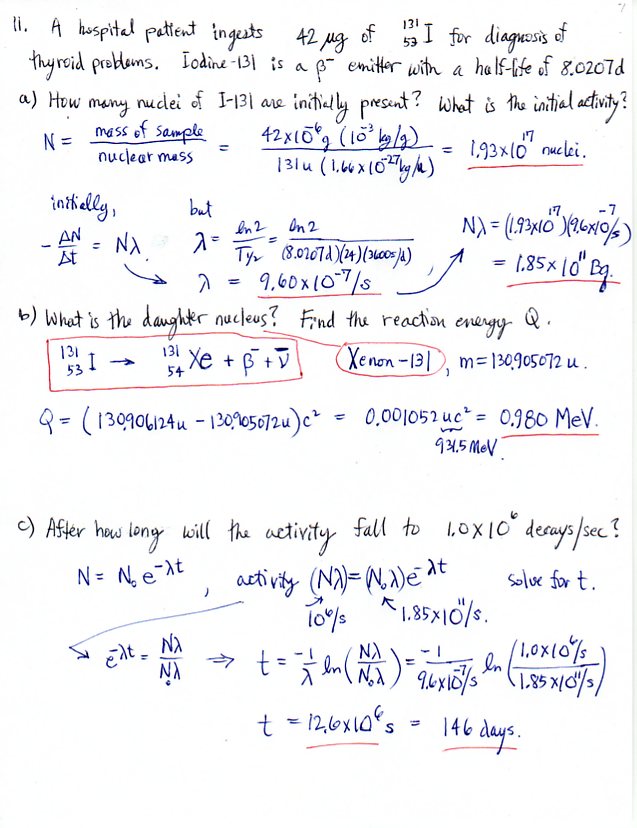 11. A hospital patient ingests 42 μg of ¹³¹₅₃I for diagnosis of
thyroid problems. Iodine-131 is a β⁻ emitter with a half-life of 8.0207d
a) How many nuclei of I-131 are initially present? What is the initial activity?
N = mass of sample / nuclear mass = 42×10⁻⁶g (10⁻³ kg/g) / 131u (1.66×10⁻²⁷ kg/u) = 1.93×10¹⁷ nuclei.
initially, but
-ΔN/Δt = Nλ. λ = ln2/T₁/₂ = ln2 / (8.0207d)(24)(3600s/d) Nλ = (1.93×10¹⁷)(9.6×10⁻⁷/s)
λ = 9.60×10⁻⁷/s = 1.85×10¹¹ Bq.
b) What is the daughter nucleus? Find the reaction energy Q.
¹³¹₅₃I → ¹³¹₅₄Xe + β⁻ + ν̄ Xenon-131, m = 130.905072 u.
Q = (130.906124u - 130.905072u)c² = 0.001052 uc² = 0.980 MeV.
931.5 MeV
c) After how long will the activity fall to 1.0×10⁶ decays/sec?
N = N₀e^-λt, activity (Nλ) = (N₀λ)e^-λt solve for t.
10⁶/s 1.85×10¹¹/s.
e^-λt = Nλ/N₀λ ⇒ t = -1/λ ln(Nλ/N₀λ) = -1/9.6×10⁻⁷/s ln(1.0×10⁶/s / 1.85×10¹¹/s)
t = 12.6×10⁶ s = 146 days.